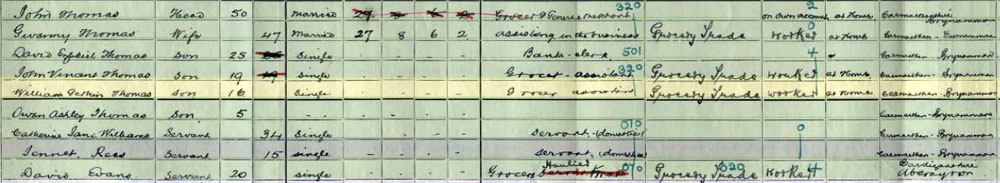 John Thomas Head 50 Married 27 8 6 2 Grocer & General merchant 320 on own account at Home Carmarthenshire Brynamman
Gwenny Thomas Wife 47 Married 27 8 6 2 assisting in the business Grocery Trade Worker at Home Carmarthen -
David Ezekiel Thomas Son 25 Single - - - - Bank-clerk 501 4 Carmarthen - Brynamman
John Vincent Thomas Son 19 Single - - - - Grocer-assistant 320 Grocery Trade Worker at Home Carmarthen - Brynamman
William Thomas Son 16 Single - - - - Grocer assistant Grocery Trade Worker at Home Carmarthen - Brynamman
Owen Ashley Thomas Son 5 - - - - Carmarthen - Brynamman
Catherine Jane Williams Servant 34 Single - - - - Servant-(domestic) 010 0 Carmarthen - Brynamman
Jennet, Rees Servant 15 Single - - - - Servant, (domestic) Carmarthen - Brynamman
David Evans Servant 20 Single - - - - Grocers Haulier 070 Grocery Trade 320 Worker 4 Cardiganshire Aberayron